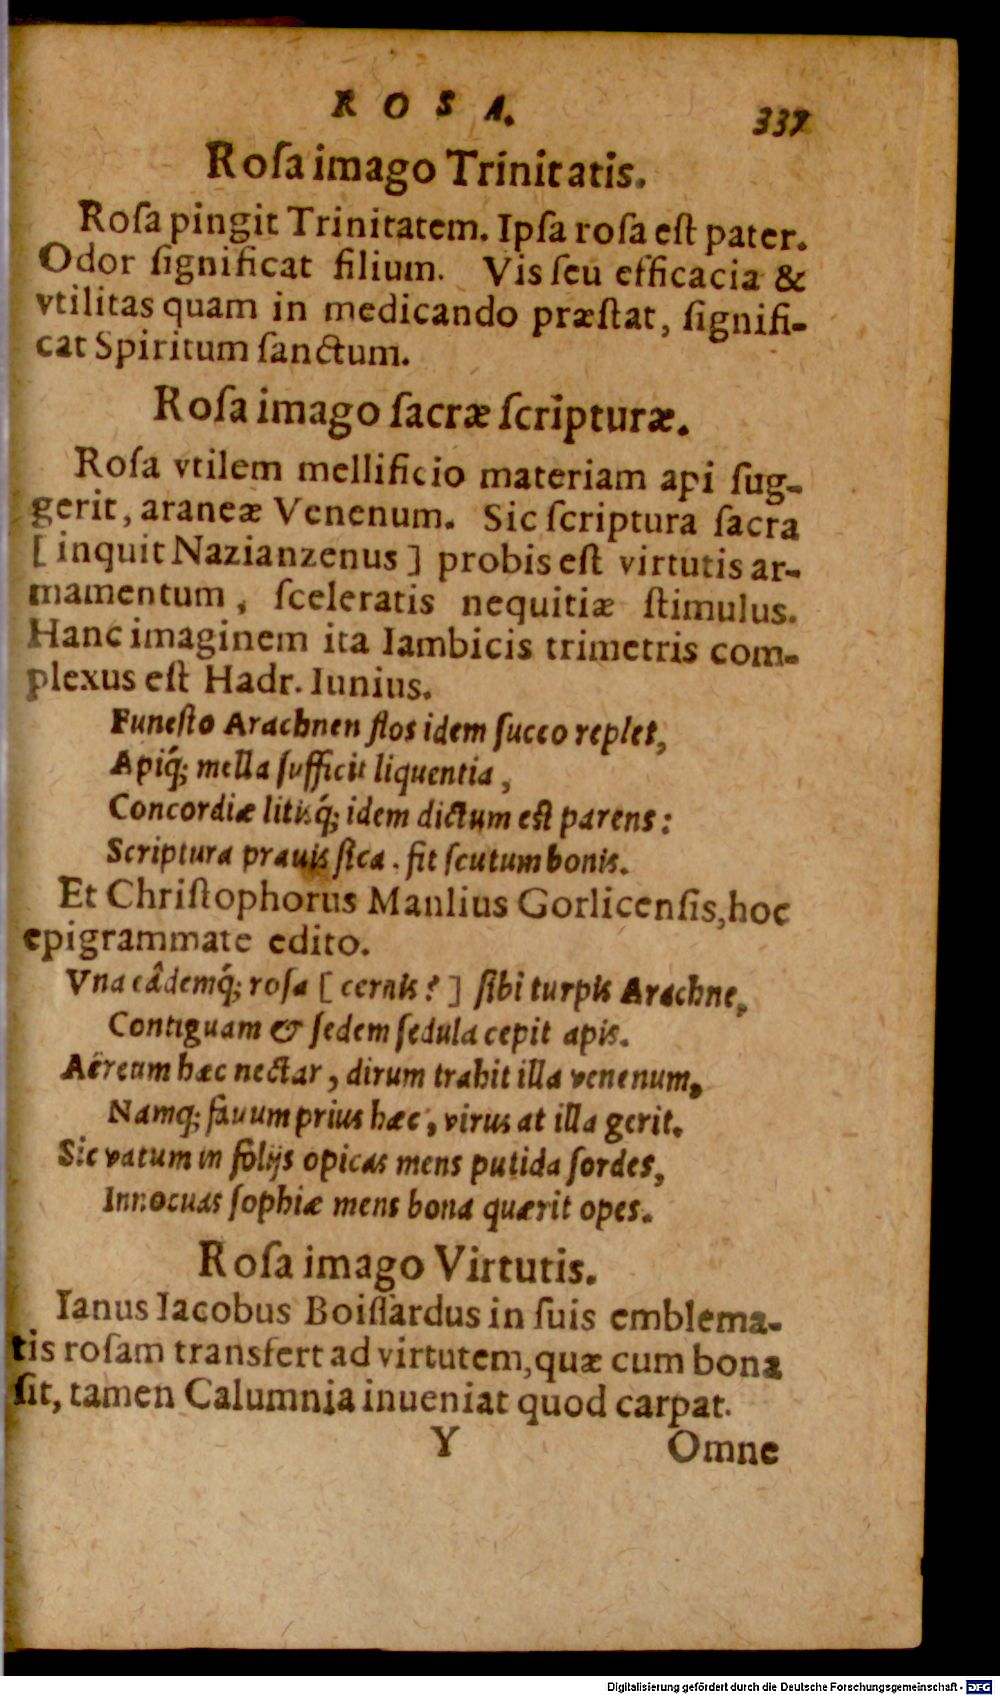 ROSA. 337
Roſa imago Trinitatis.
Roſa pingit Trinitatem. Ipſa roſa eſt pater.
Odor ſignificat filium. Vis ſeu efficacia &
vtilitas quam in medicando præſtat, ſignifi-
cat Spiritum ſanctum.
Roſa imago ſacræ ſcripturæ.
Roſa vtilem mellificio materiam api ſug-
gerit, araneæ Venenum. Sic ſcriptura ſacra
[inquit Nazianzenus] probis eſt virtutis ar-
mamentum, ſceleratis nequitiæ ſtimulus.
Hanc imaginem ita Iambicis trimetris com-
plexus eſt Hadr. Iunius.
Funeſto Arachnen flos idem ſucco replet,
Apiq́; mella ſufficit liquentia,
Concordiæ litisq́; idem dictum eſt parens:
Scriptura prauis ſica. fit ſcutum bonis.
Et Chriſtophorus Manlius Gorlicenſis, hoc
epigrammate edito.
Vna eâdemq́; roſa [cernis?] ſibi turpis Arachne,
Contiguam & ſedem ſedula cepit apis.
Aëreum hæc nectar, dirum trahit illa venenum,
Namq; fauum prius hæc, virus at illa gerit.
Sic vatum in folijs opicas mens putida ſordes,
Innocuas ſophiæ mens bona quærit opes.
Roſa imago Virtutis.
Ianus Iacobus Boiſſardus in ſuis emblema-
tis roſam transfert ad virtutem, quæ cum bona
ſit, tamen Calumnia inueniat quod carpat.
Y Omne
Digitalisierung gefördert durch die Deutsche Forschungsgemeinschaft - DFG